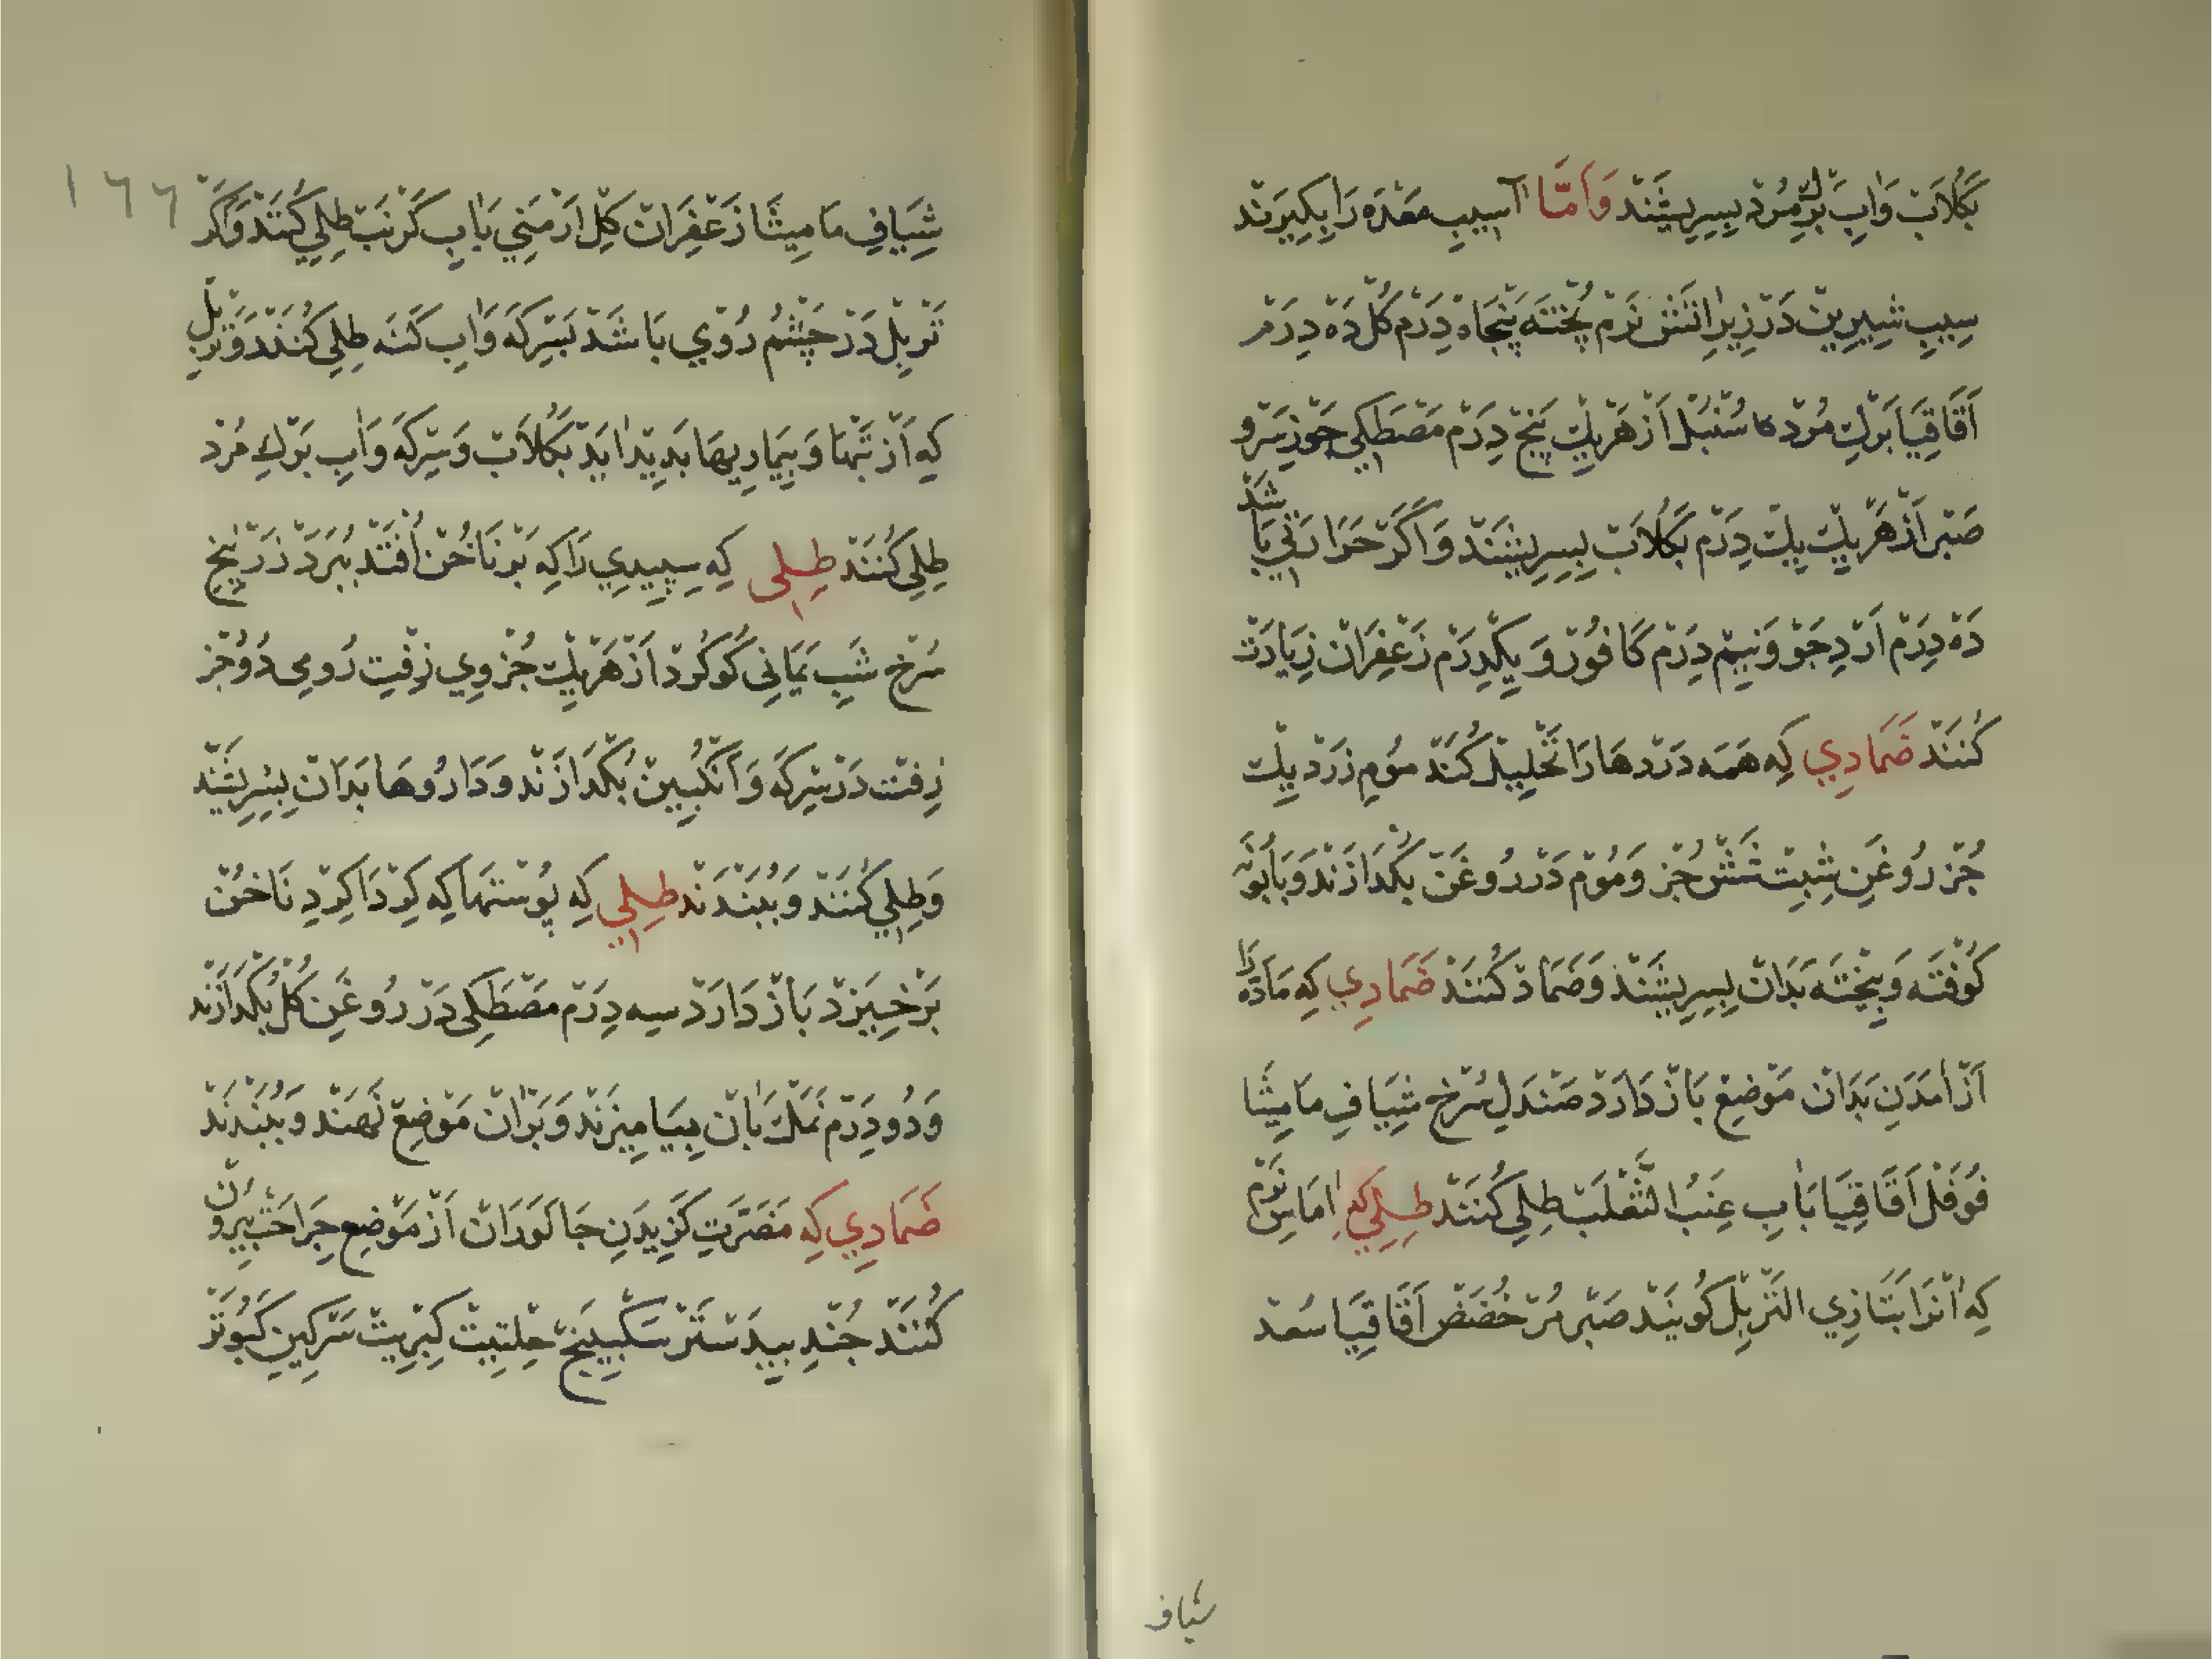 بَکُلاَبْ وَابِ بَرْکِ مُرْدْ بِسِرِیشَنْد وَاَمَّا آسیبِ مَعْدَه رَا بِکِیرَنْد
سِیبِ شِیرِینْ دَرْ زِیرِ اتَشْ نَرْم پُخْتَه پَنْجَاه دِرَم کُل دَه دِرَم
اَقَاقِیَا بَرْکِ مُرْد سُنْبُلْ اَزْ هَرْ یِکْ پَنج دِرَم مَصْطَکِی جَوزِ سَرْو
صَبْر اَزْ هَرْ یِکْ یِکْ دِرَم بَکُلاَبْ بِسِرِیشَنْد وَاَکَرْ حَرَارَتِی بَاشَدْ
دَه دِرَم اَرْدِ جَوْ وَنِیم دِرَم کَافُورْ وَیِکْدِرَم زَعْفَرَانْ زِیَادَتْ
کُنَنْد ضِمَادِي کِه هَمَه دَرْدهَا رَا تَحْلِیلْ کُنَدْ مُومِ زَرْد یِکْ
جُزْ رُوغَنِ شِبِتْ شَشْ جُزْ وَمُومْ دَرْ رُوغَنْ بِکُدَازَنْدْ وَبَابُونَه
کُوفْتَه وَبِیخْتَه بَدَانْ بِسِرِیشَنْد وَضِمَادْ کُنَنْد ضِمَادِي کِه مَادَّه رَا
اَزْ امَدَنِ بَدَانْ مَوْضِعْ بَازْ دَارَدْ صَنْدَلِ سُرْخ شِیَافِ مَامِیثَا
فُوفَلْ اَقَاقِیَا بَابِ عِنَبُ الثَّعْلَبْ طِلِی کُنَنْد طِلِي کِه امَاسِ نَرْم
کِه انْرَا بَتَازِي التَرَبُّلْ کُویَنْد صَبْر مُرْ خُضَضْ اَقَاقِیَا سُعْد
شیاف
١٦٦
شِیَافِ مَامِیثَا زَعْفَرَانْ کِلِ اَرْمَنِي بَابِ کَرْنَبْ طِلِي کُنَنْد وَاَکَر
تَرَبُّلْ دَرْ چَشْمُ رُوْي بَاشَدْ بَسِرْکَه وَابِ کَشنَه طِلِي کُنَنْد وَتَرَبُّلِ
کِه اَزْ تَبْهَا وَبِیمَارِیهَا بَدِیْد ایَدْ بَکُلاَبْ وَسِرْکَه وَابِ بَرْكِ مُرْد
طِلِي کُنَنْد طِلِی کِه سِپِیدِي رَا کِه بَرْ نَاخُنْ اُفْتَدْ بِبَرَدْ زَرْنِیخ
سُرْخ شَبِ یَمَانِي کُوکُرْدْ اَزْ هَرْ یِکْ جُزْوِي زِفْتِ رُومِی دُو جُزْ
زِفْتْ دَرْ سِرْکَه وَاَنْکُبِینْ بُکْدَازَنْد وَدَارُوهَا بَدَانْ بِسِرِیشَنْد
وَطِلِي کُنَنْد وَبِبَنْدَنْد طِلِي کِه پُوسْتهَا کِه کِرْدَا کِرْدِ نَاخُنْ
بَرْخِیزَدْ بَازْ دَارَدْ سِه دِرَم مَصْطَکِی دَرْ رُوغَنِ کُلْ بُکْدَازَنْد
وَدُو دِرَم نَمَكْ بَانْ بِیَامِیزَنْد وَبَرْانْ مَوْضِعْ نِهَنْد وَبِبَنْدَنْد
ضِمَادِي کِه مَضَرَّتِ کَزِیدَنِ جَانَوَرَانْ اَزْ مَوْضِعِ جِرَاحَتْ بِیرُونْ
کُنَنْد جُنْدِ بِیدَسْتَرْ سَکْبِینَجْ حِلْتِیتْ کِبْرِیتْ سَرْکِینِ کَبُوتَرْ